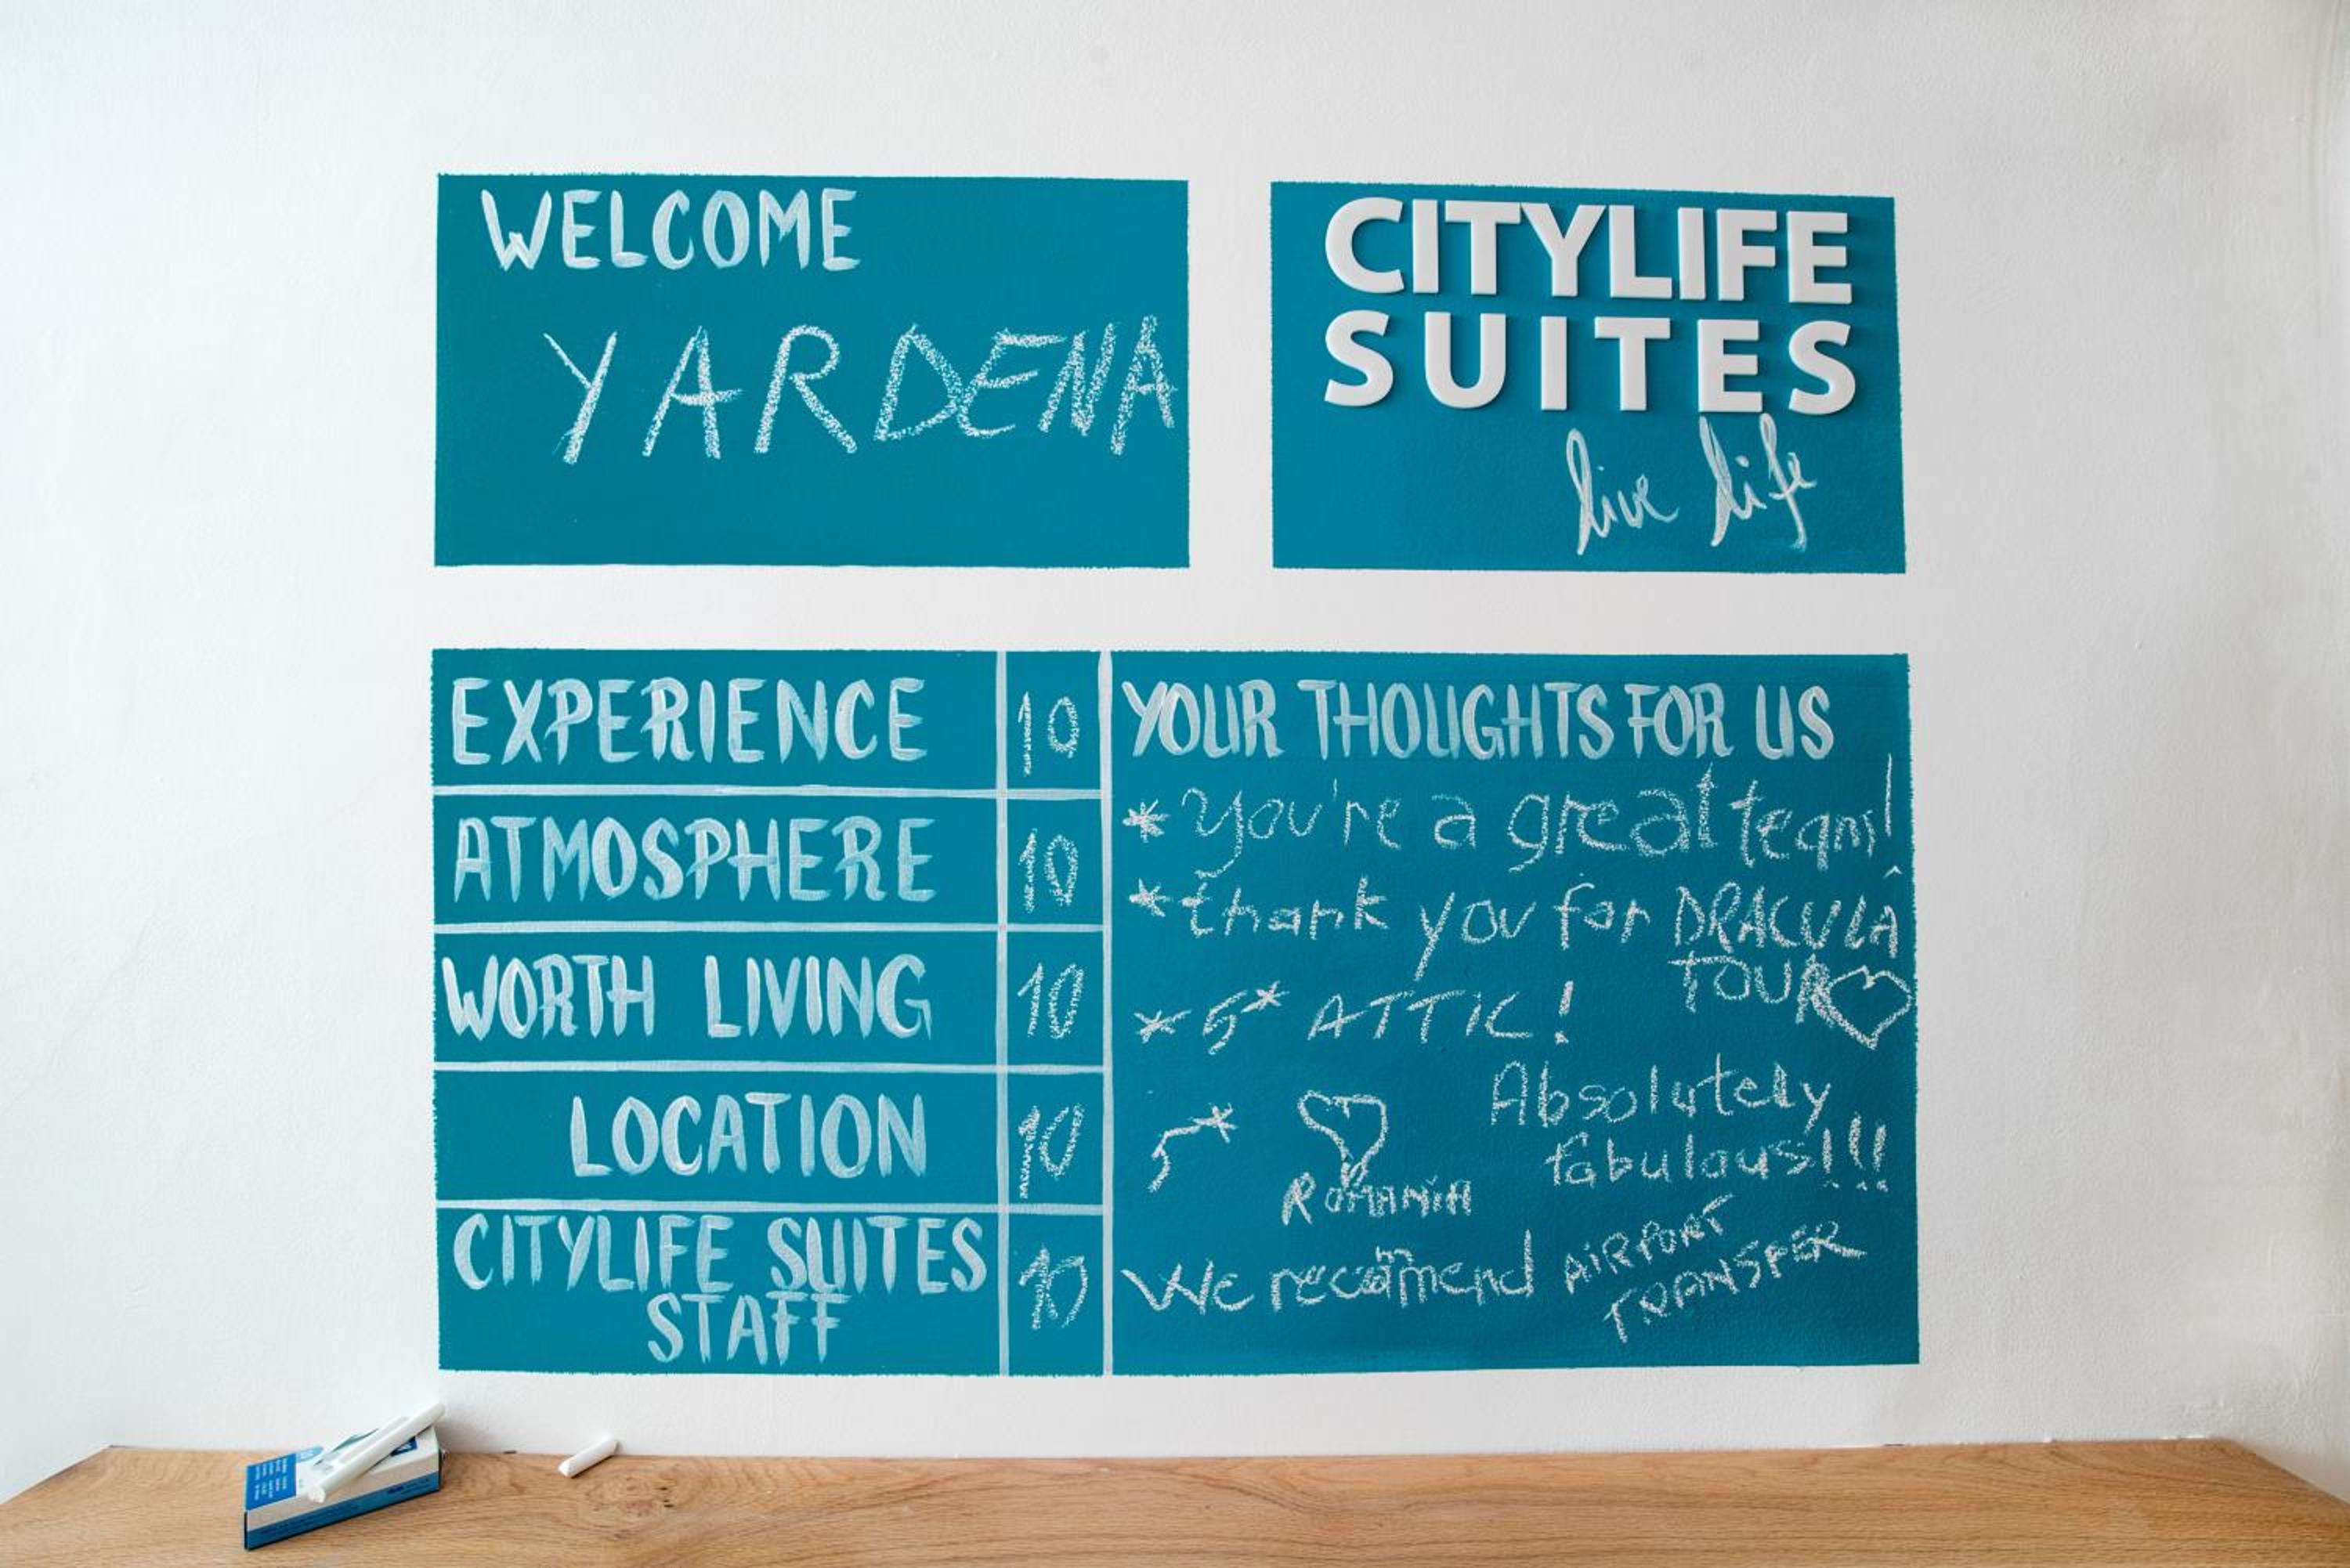 WELCOME
YARDENA
CITYLIFE
SUITES
live life
EXPERIENCE 10
ATMOSPHERE 10
WORTH LIVING 10
LOCATION 10
CITYLIFE SUITES
STAFF 10
YOUR THOUGHTS FOR US
* You're a great team!
* thank you for DRACULA
TOUR
* 5* ATTIC!
Absolutely
fabulous!!!
5*
ROMANIA
We recommend AIRPORT
TRANSFER